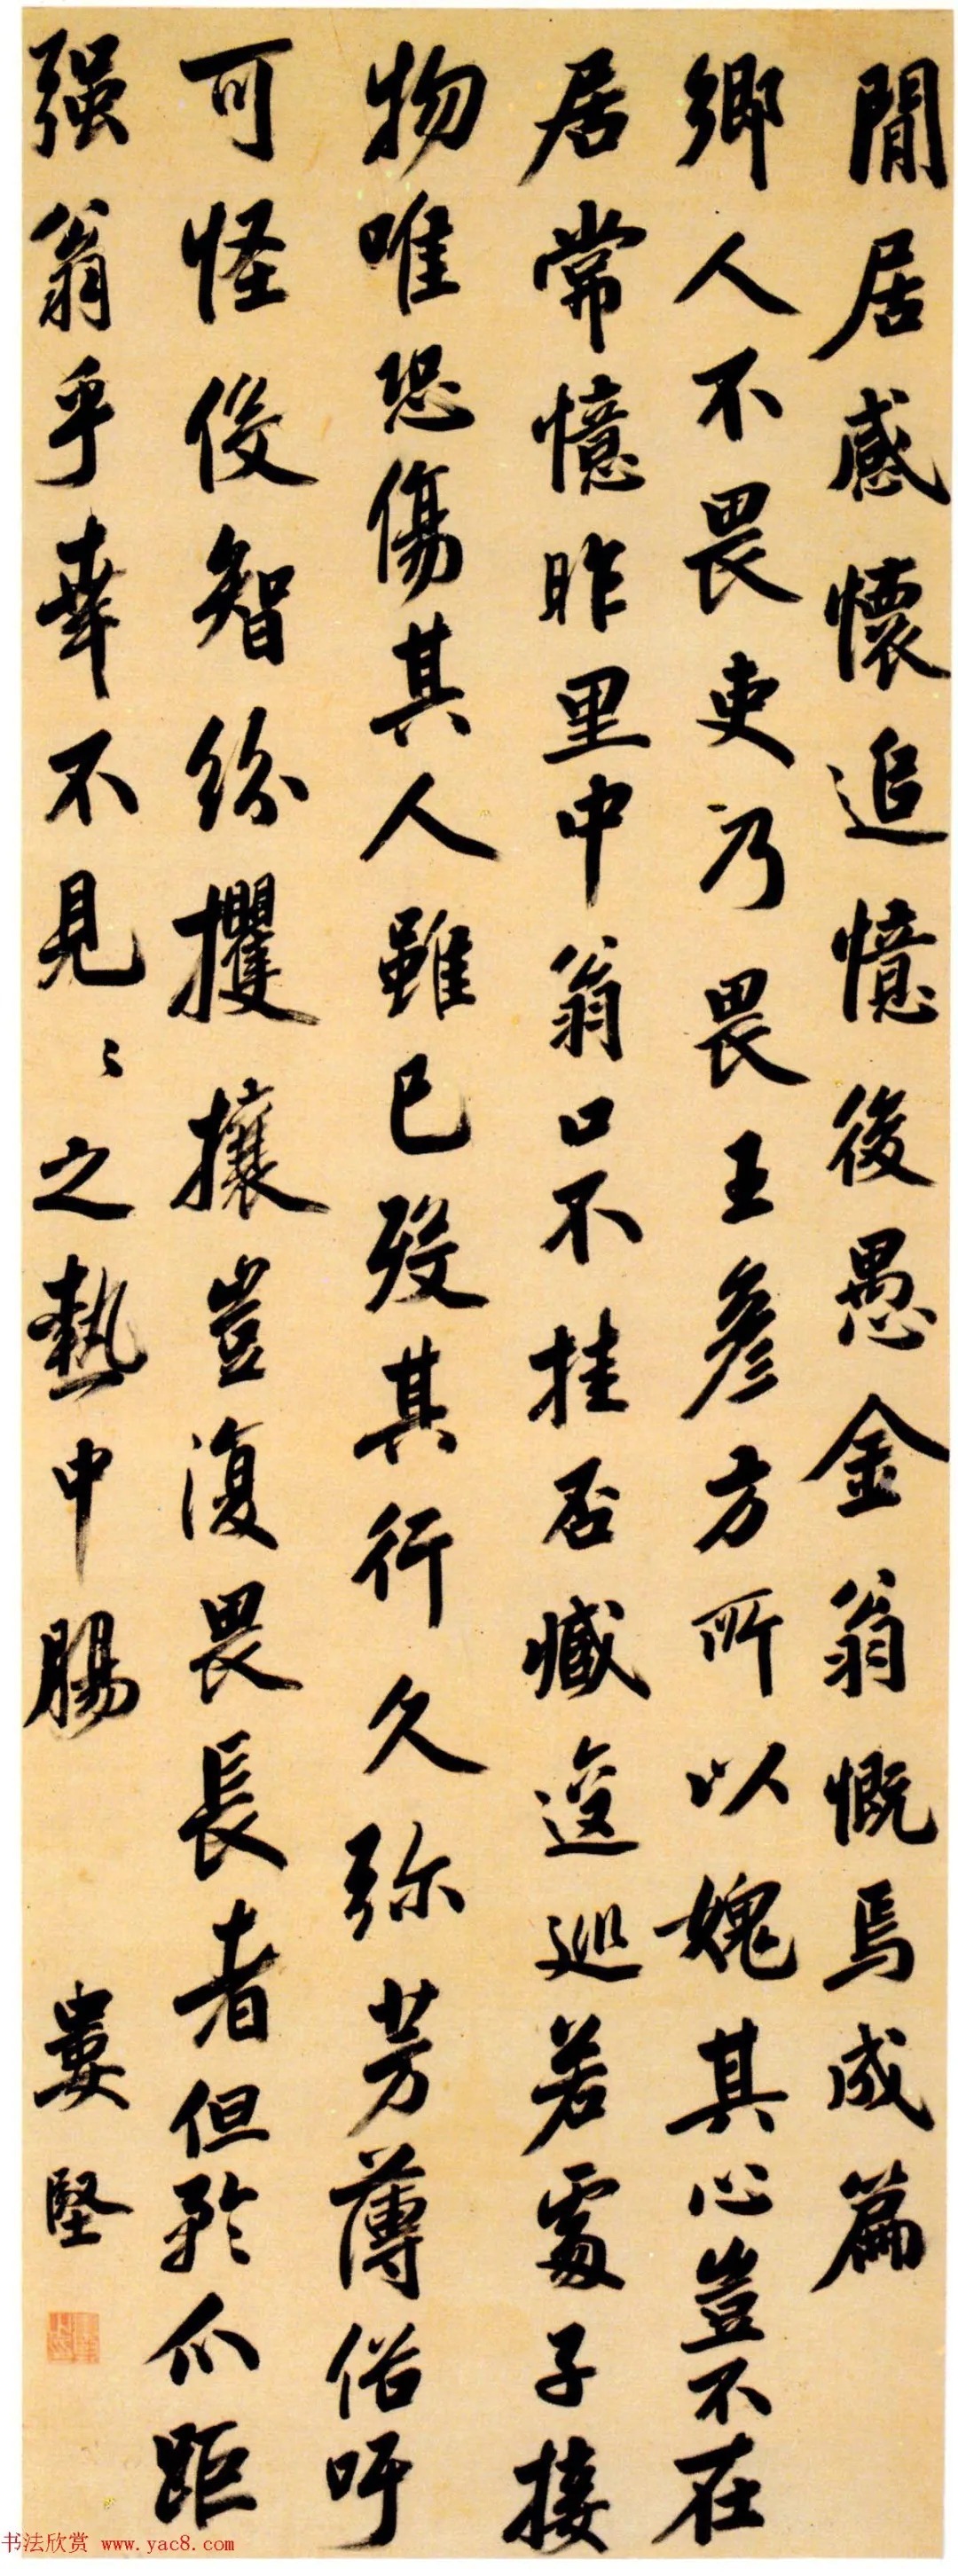 閒居感懷追憶後愚金翁慨焉成篇
鄉人不畏吏乃畏王彥方所以媿其心豈不在
居常憶昨里中翁口不挂否臧逡巡若處子接
物唯恐傷其人雖已歿其行久弥芳薄俗吁
可怪後智紛攫攘豈復畏長者但矜爪距
强翁乎幸不見〻之熱中腸
婁堅
书法欣赏 www.yac8.com